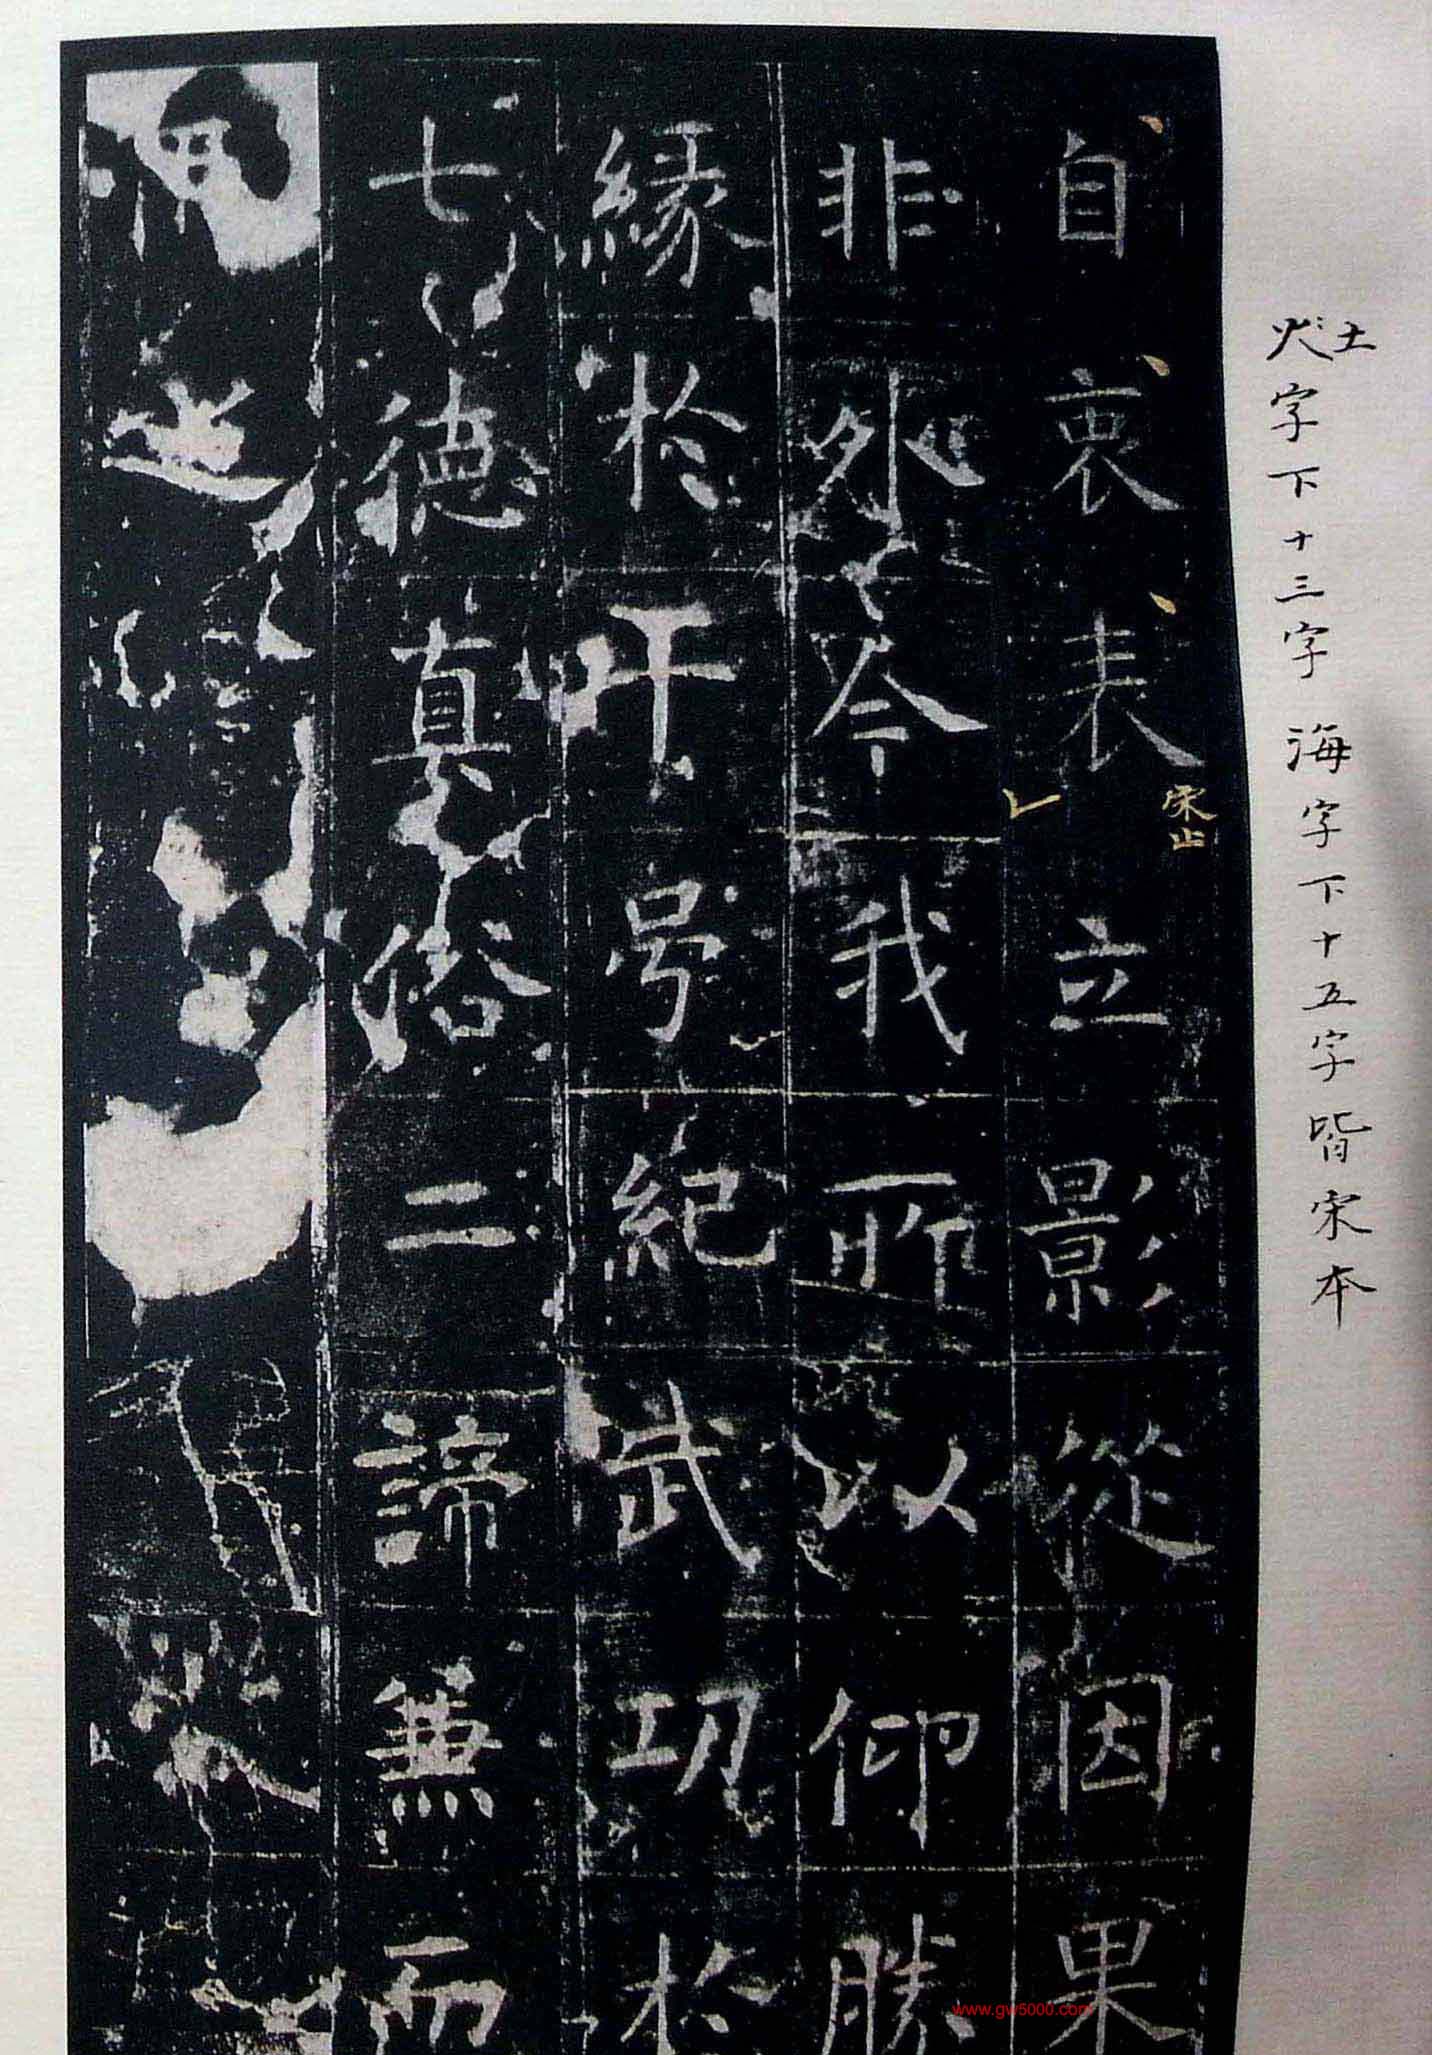 土
火字下十三字海字下十五字皆宋本
自衷表立影從因果
宋止
非外今我所以仰勝
緣於干号紀武功於
七德真俗二諦兼而
www.gw5000.com